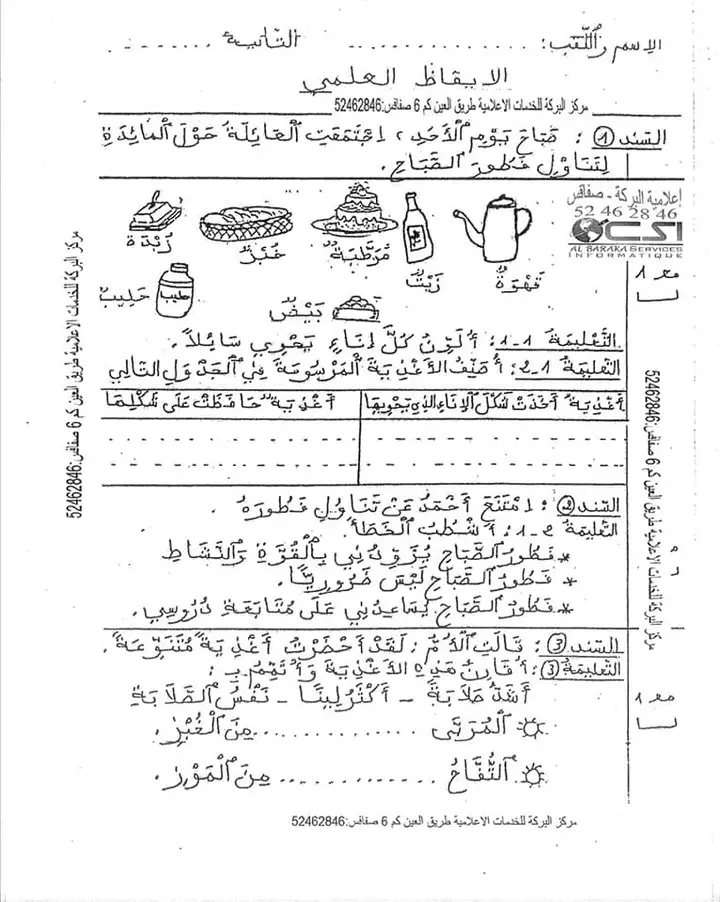 الاسم واللقب: ................ الثانية ........
الإيقاظ العلمي
مركز البركة للخدمات الاعلامية طريق العين كم 6 صفاقس:52462846
السند ①: صَبَاحَ يَوْمِ الْأَحَدِ، اجْتَمَعَتِ الْعَائِلَةُ حَوْلَ الْمَائِدَةِ
لِتَنَاوُلِ فَطُورِ الصَّبَاحِ.
إعلامية البركة - صفاقس
52 46 28 46
CSI
AL BARAKA SERVICES
INFORMATIQUE
زُبْدَةٌ
خُبْزٌ
مُرَطَّبَةٌ
زَيْتٌ
قَهْوَةٌ
حَلِيبٌ
حليب
بَيْضٌ
مع 1
التَّعْلِيمَةُ 1-1: أُلَوِّنُ كُلَّ إِنَاءٍ يَحْوِي سَائِلًا.
التعليمة 1-2: أُصَنِّفُ الأَغْذِيَةَ الْمَرْسُومَةَ فِي الْجَدْوَلِ التالي
أَغْذِيَةٌ أَخَذَتْ شَكْلَ الْإِنَاءِ الذي يَحْوِيهَا
أَغْذِيَةٌ حَافَظَتْ عَلَى شَكْلِهَا
السند ②: اِمْتَنَعَ أَحْمَدُ عَنْ تَنَاوُلِ فَطُورِهِ.
التعليمة 2-1: أَشْطُبُ الْخَطَأَ.
* فَطُورُ الصَّبَاحِ يُزَوِّدُنِي بِالْقُوَّةِ وَالنَّشَاطِ
* فَطُورُ الصَّبَاحِ لَيْسَ ضَرُورِيًّا.
* فَطُورُ الصَّبَاحِ يُسَاعِدُنِي عَلَى مُتَابَعَةِ دُرُوسِي.
السند ③: قَالَتِ الْأُمُّ: لَقَدْ أَحْضَرْتُ أَغْذِيَةً مُتَنَوِّعَةً.
التعليمة ③: أُقَارِنُ هَذِهِ الأَغْذِيَةَ وَأُتَمِّمُ بِـ:
أَشَدُّ صَلَابَةً - أَكْثَرُ لِينًا - نَفْسُ الصَّلَابَةِ
مع 1
الْمُرَبَّى ................ مِنَ الْخُبْزِ.
التُّفَّاحُ ............ مِنَ الْمَوْزِ.
مركز البركة للخدمات الاعلامية طريق العين كم 6 صفاقس:52462846
مركز البركة للخدمات الاعلامية طريق العين كم 6 صفاقس:52462846
مركز البركة للخدمات الاعلامية طريق العين كم 6 صفاقس:52462846